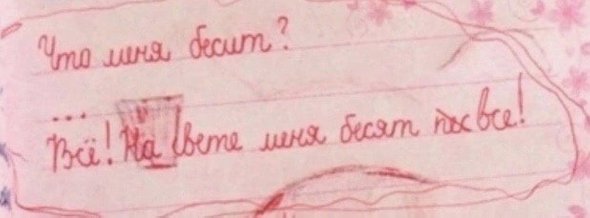 Что меня бесит?
...
Всё! На свете меня бесят все!